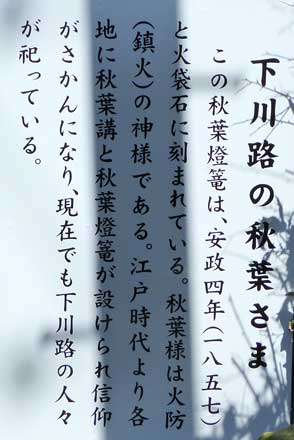 下川路の秋葉さま
この秋葉燈篭は、安政四年(一八五七)
と火袋石に刻まれている。秋葉様は火防
(鎮火)の神様である。江戸時代より各
地に秋葉講と秋葉燈篭が設けられ信仰
がさかんになり、現在でも下川路の人々
が祀っている。